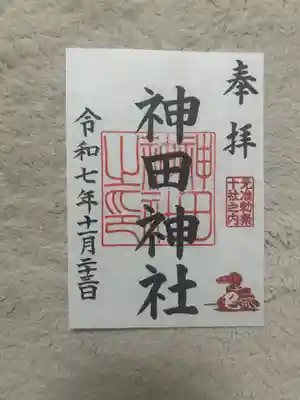 奉拝
元准勅祭
十社之内
神田神社
神田神社之印
令和七年十一月二十三日